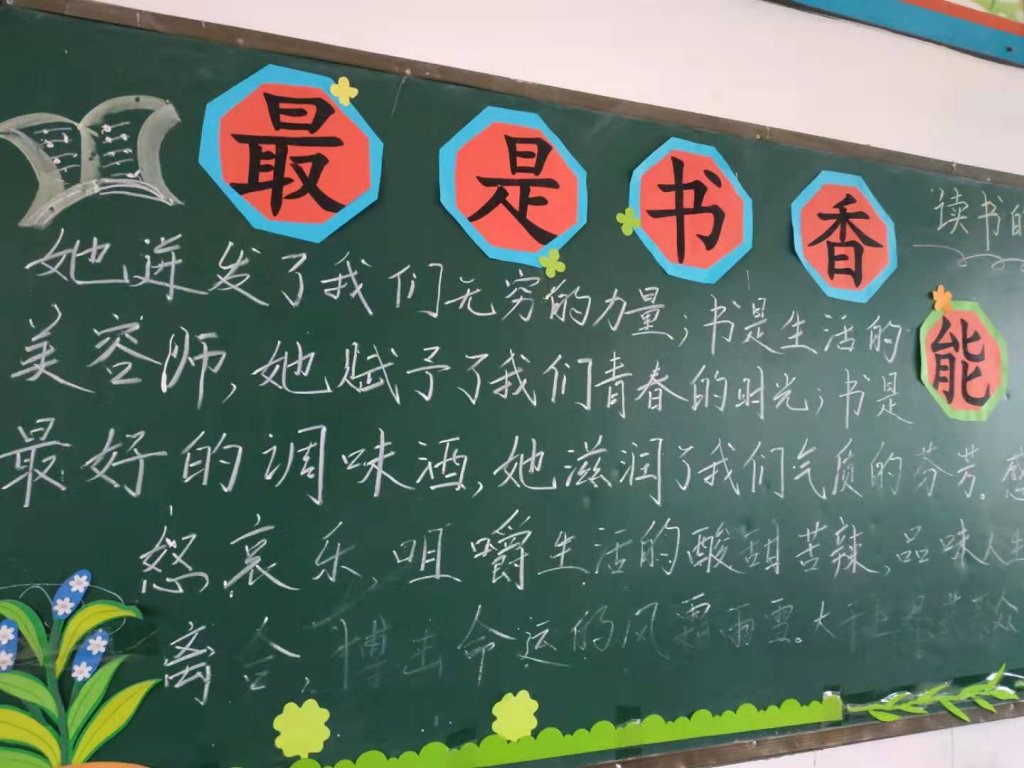 最是书香能
读书的
她迸发了我们无穷的力量；书是生活的
美容师，她赋予了我们青春的时光；书是
最好的调味酒，她滋润了我们气质的芬芳。感
怒哀乐，咀嚼生活的酸甜苦辣，品味人生
离合，搏击命运的风霜雨雪。大千世界芸芸众